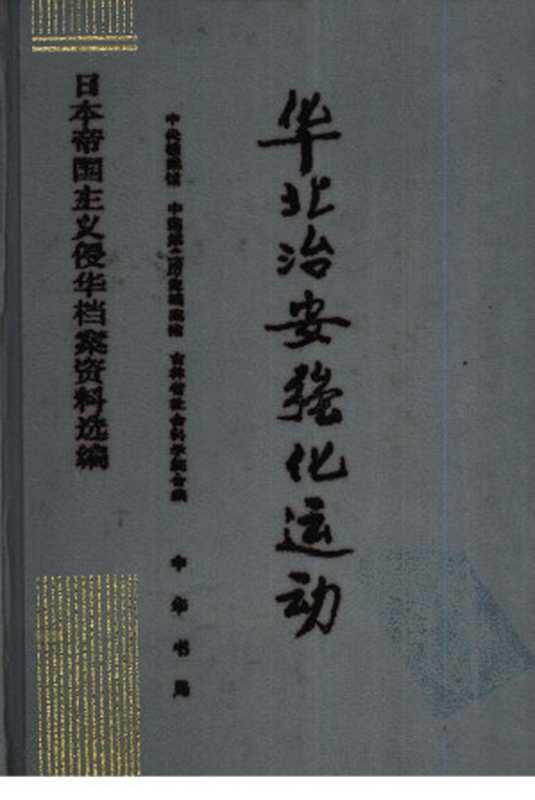 华北治安强化运动
中央档案馆 中国第二历史档案馆 吉林省社会科学院合编
中华书局
日本帝国主义侵华档案资料选编